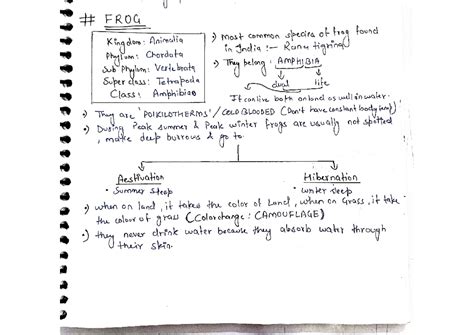 # FROG
Kingdom: Animalia
Phylum: Chordata
Sub Phylum: Vertebrata
Super class: Tetrapoda
Class: Amphibian
→ Most common species of frog found
in India :- Rana tigrina
→ They belong : AMPHIBIA
dual life
It can live both on land as well in water.
→ They are 'POIKILOTHERMS' / COLD BLOODED (Don't have constant body temp)
• During Peak summer & Peak winter frogs are usually not spotted
, make deep burrows & go to
Aestivation
Summer sleep
Hibernation
Winter sleep
→ when on land, it takes the color of Land, when on Grass, it take
the color of grass (Color change : CAMOUFLAGE)
→ they never drink water because they absorb water through
their skin.